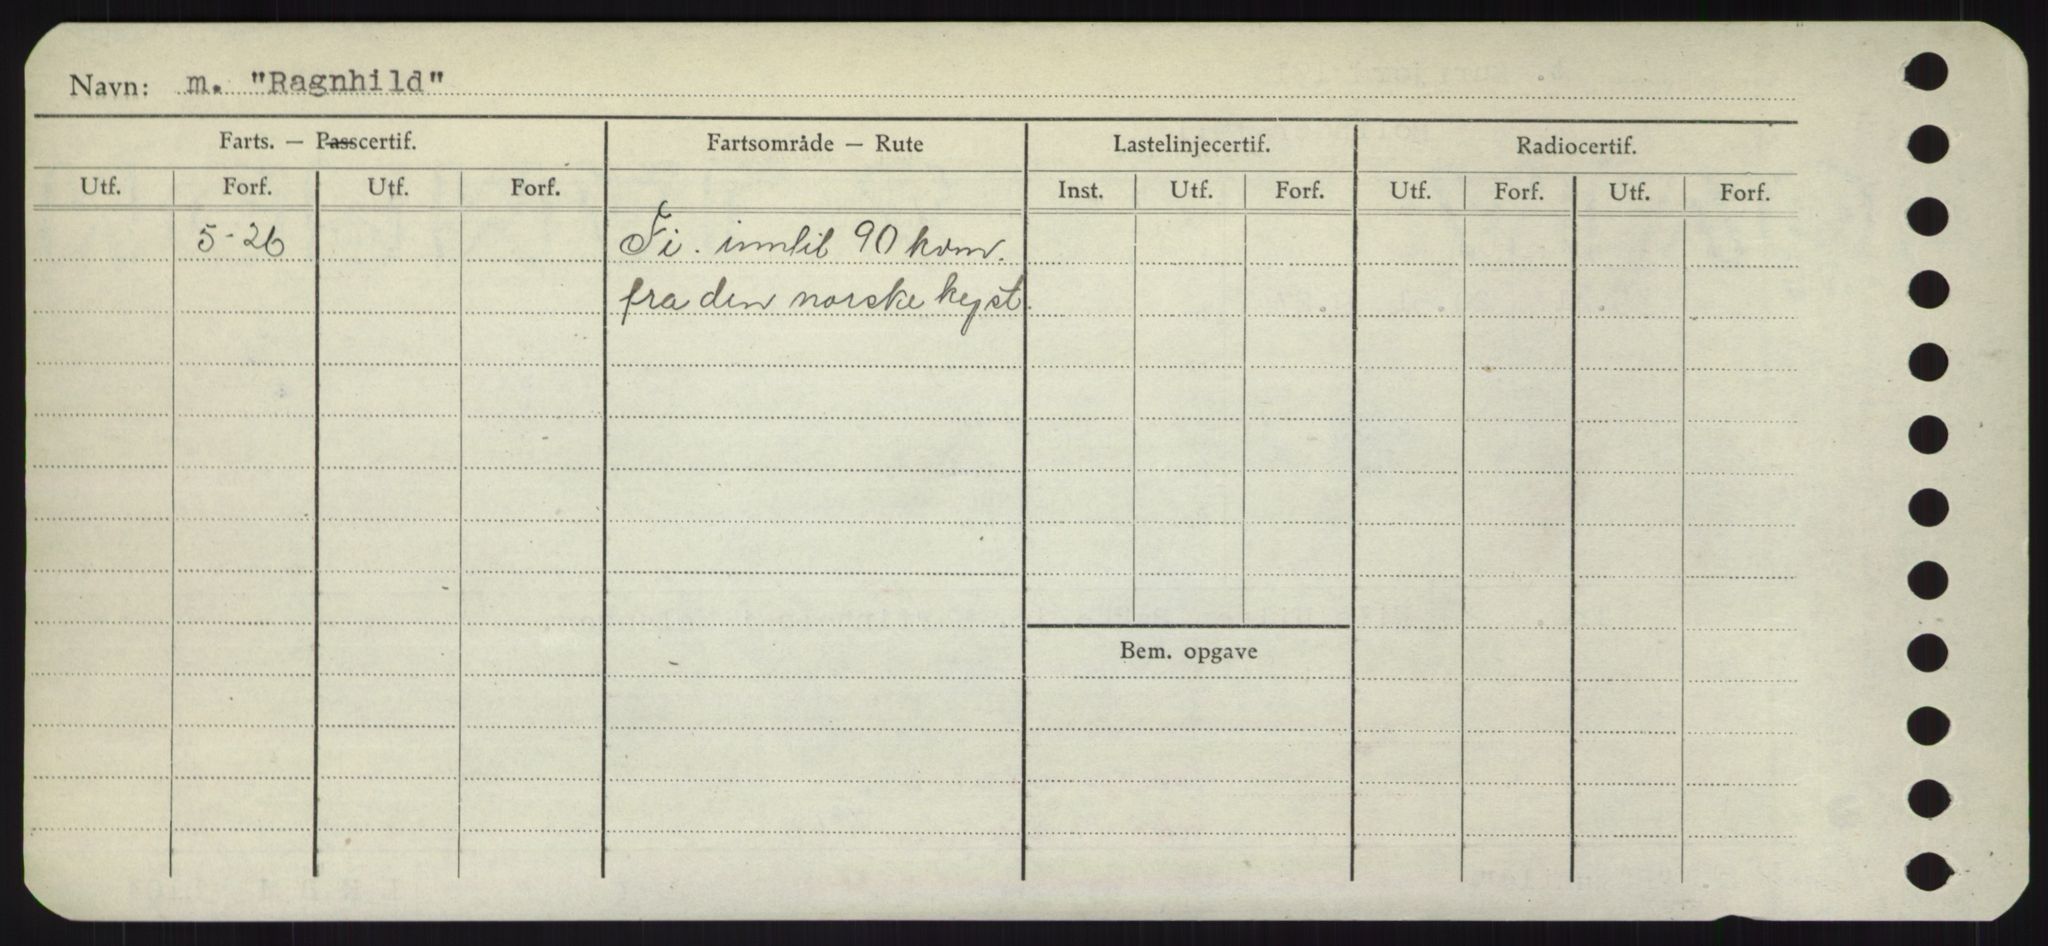 Navn: m. "Ragnhild"
Farts. — Passcertif. Fartsområde — Rute Lastelinjecertif. Radiocertif.
Utf. Forf. Utf. Forf. Inst. Utf. Forf. Utf. Forf. Utf. Forf.
5-26 Fi. inntil 90 kvm.
fra den norske kyst.
Bem. opgave